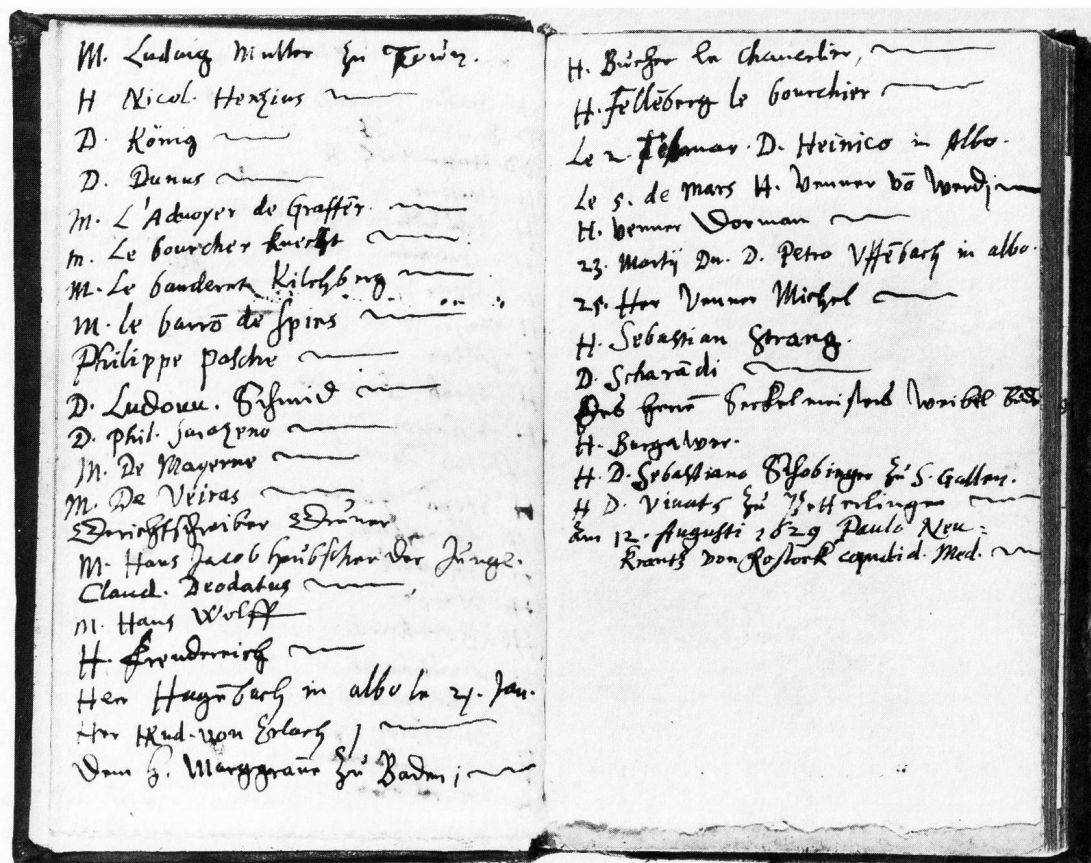 M. Ludwig Muller zu
H Nicol. Henzius
D. König
D. Dunus
M. L'Aduoyer de Graffēr.
m. Le bourcher knecht
M. Le banderet Kilchberg
M. le barrō de spies
Philippe Pasche
D. Ludouu. Schmid
D. Phil. Sarazeno
M. De Mayerne
M. De Veiras
Gerichtschreiber Gruner
M. Hans Jacob Heubscher der Jünge.
Claud. Deodatus
m. Hans Wolff
H. Freudereich
Her Hagēbach in albo le 21. Jan.
Her Rud. von Erlach
Dem H. Marggraue zu Baden,
H. Bucher le chancelier,
H. Fellēberg le bourchier
Le 2. D. Heinico in Albo.
Le 5. de Mars H. Venner vō Werdt
H. Venner Dorman
23. Martij Dn. D. Petro Uffēbach in albo.
25. Her Venner Michel
H. Sebastian Strang.
D. Scharādi
Des Herrē Seckelmeisters Weibel
H. Burgawer.
H. D. Sebastiano Schobinger zu S. Gallen.
H D. Vivats zu Petterlingen
Am 12. Augusti 1629 Paulo Neu-
krantz von Rostock candid. Med.